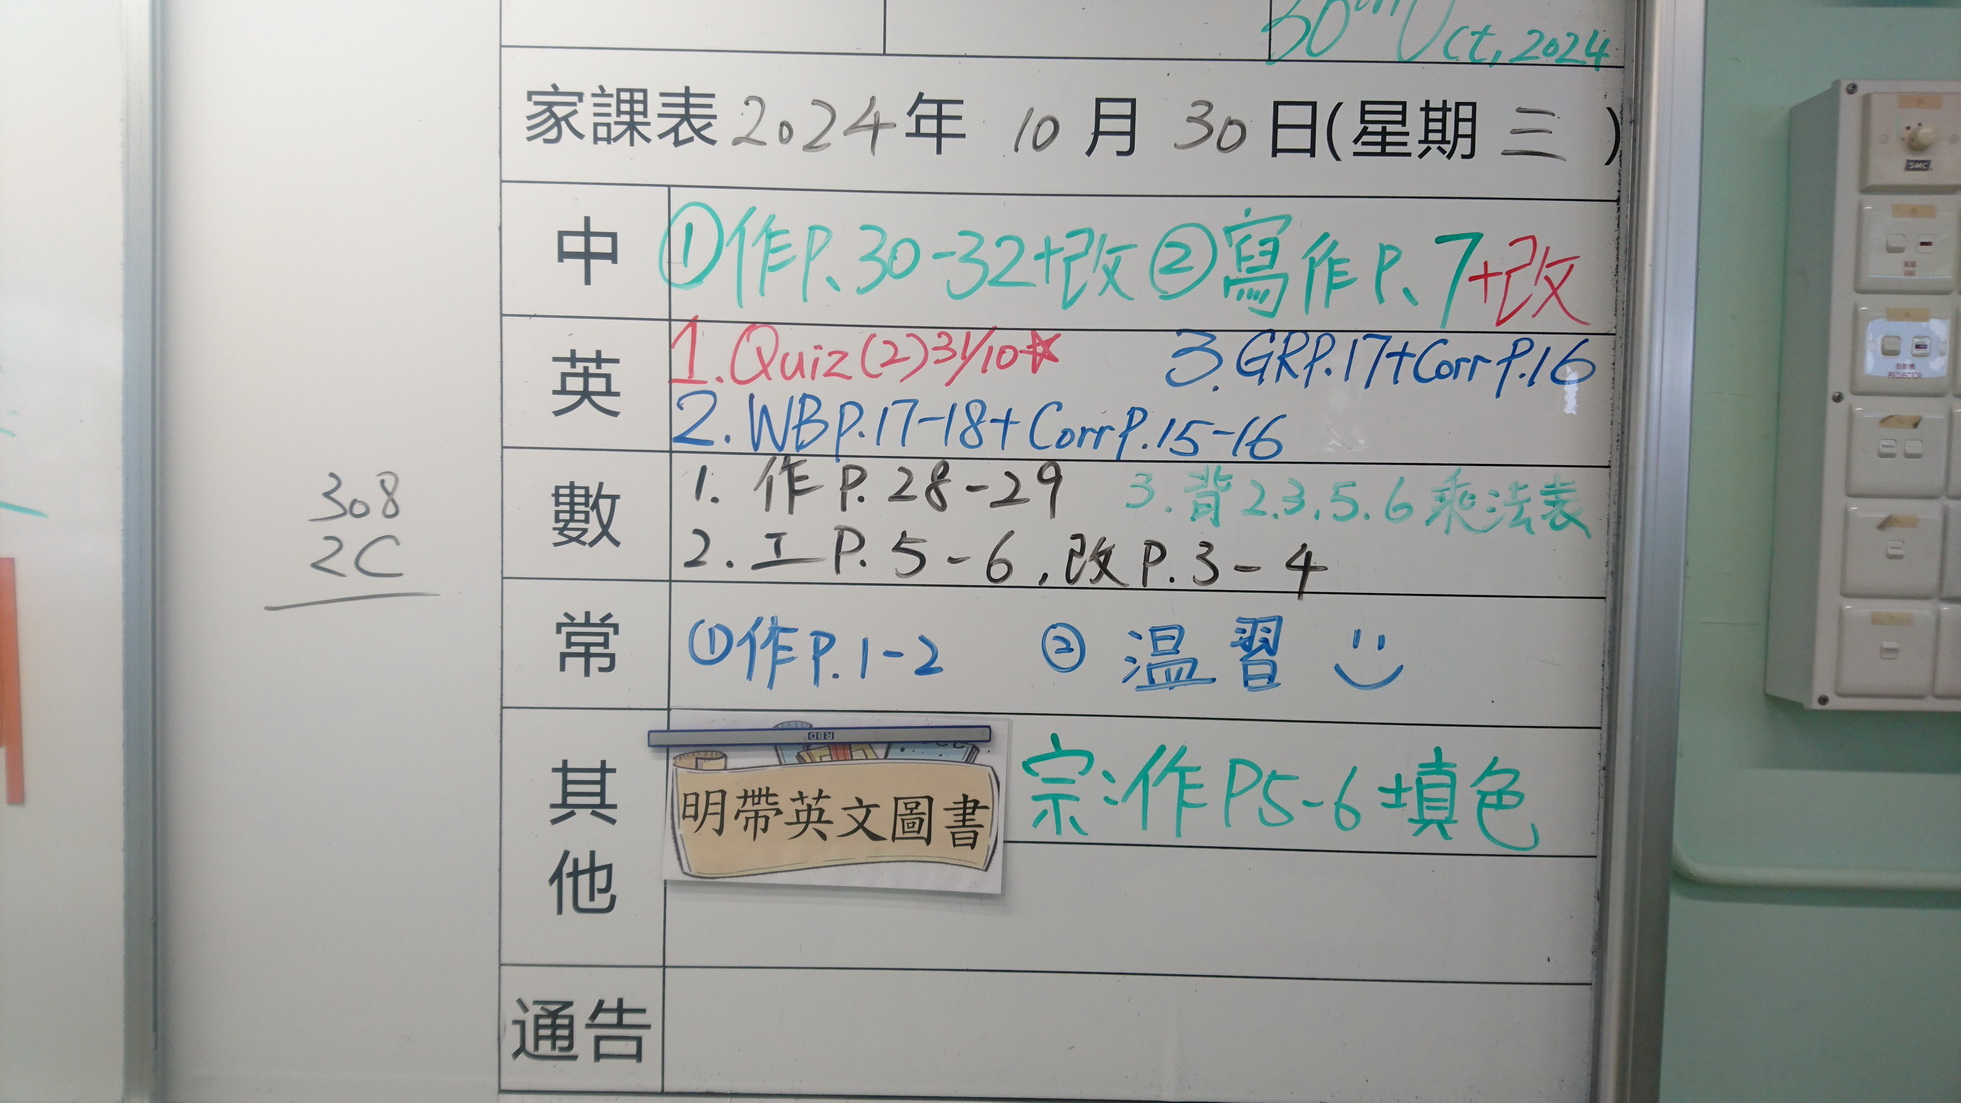 30th Oct, 2024
家課表 2024 年 10 月 30 日(星期 三 )
中 ①作P.30-32+改 ②寫作P.7+改
英 1.Quiz(2)31/10☆ 3.GRP.17+Corr P.16
2.WBP.17-18+Corr P.15-16
數 1. 作P.28-29 3.背2.3.5.6乘法表
2.工P.5-6,改P.3-4
常 ①作P.1-2 ②温習
其他 明帶英文圖書 宗:作P5-6+填色
通告
308
2C
SMC